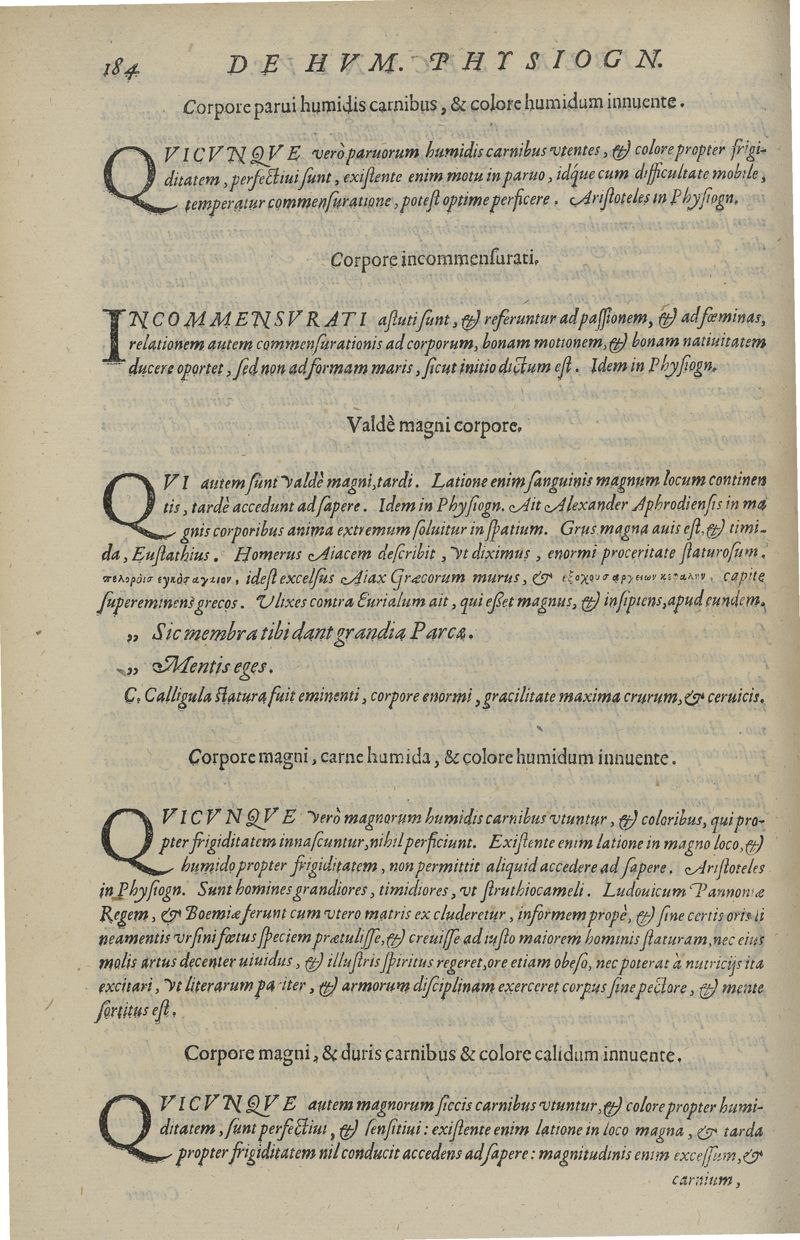 184 DE HVM. PHYSIOGN.
Corpore parui humidis carnibus, & colore humidum innuente.
QVICVNQVE verò paruorum humidis carnibus vtentes, & colore propter frigi-
ditatem, perfectiui sunt, existente enim motu in paruo, idque cum difficultate mobile,
temperatur commensuratione, potest optime perficere. Aristoteles in Physiogn.
Corpore incommensurati.
INCOMMENSVRATI astuti sunt, & referuntur ad passionem, & ad fœminas,
relationem autem commensurationis ad corporum, bonam motionem, & bonam natiuitatem
ducere oportet, sed non ad formam maris, sicut initio dictum est. Idem in Physiogn.
Valdè magni corpore.
QVI autem sunt valdè magni, tardi. Latione enim sanguinis magnum locum continen
tis, tardè accedunt ad sapere. Idem in Physiogn. Ait Alexander Aphrodiensis in ma
gnis corporibus anima extremum soluitur in spatium. Grus magna auis est, & timi-
da, Eustathius. Homerus Aiacem describit, vt diximus, enormi proceritate staturosum.
idest excelsus Aiax Græcorum murus, & capite
supereminens grecos. Vlixes contra Eurialum ait, qui esset magnus, & insipiens, apud eundem.
„ Sic membra tibi dant grandia Parcæ.
„ Mentis eges.
C. Calligula statura fuit eminenti, corpore enormi, gracilitate maxima crurum, & ceruicis.
Corpore magni, carne humida, & colore humidum innuente.
QVICVNQVE verò magnorum humidis carnibus vtuntur, & coloribus, qui pro-
pter frigiditatem innascuntur, nihil perficiunt. Existente enim latione in magno loco, &
humido propter frigiditatem, non permittit aliquid accedere ad sapere. Aristoteles
in Physiogn. Sunt homines grandiores, timidiores, vt struthiocameli. Ludouicum Pannoniæ
Regem, & Boemiæ ferunt cum vtero matris excluderetur, informem propè, & sine certis oris li
neamentis vrsini fœtus speciem prætulisse, & creuisse ad iusto maiorem hominis staturam, nec eius
molis artus decenter uiuidus, & illustris spiritus regeret, ore etiam obeso, nec poterat à nutricijs ita
excitari, vt literarum pariter, & armorum disciplinam exerceret corpus sine pectore, & mente
sortitus est.
Corpore magni, & duris carnibus & colore calidum innuente.
QVICVNQVE autem magnorum siccis carnibus vtuntur, & colore propter humi-
ditatem, sunt perfectiui, & sensitiui: existente enim latione in loco magna, & tarda
propter frigiditatem nil conducit accedens ad sapere: magnitudinis enim excessum, &
carnium,